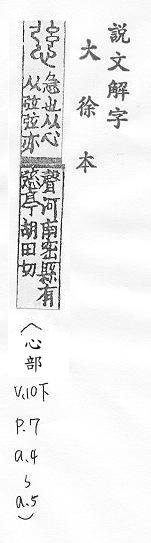 説文解字
大徐本
急也从心
从弦弦亦
聲河南密縣有
亭胡田切
(心部
V.10下
P.7
a.4
ら
a.5)